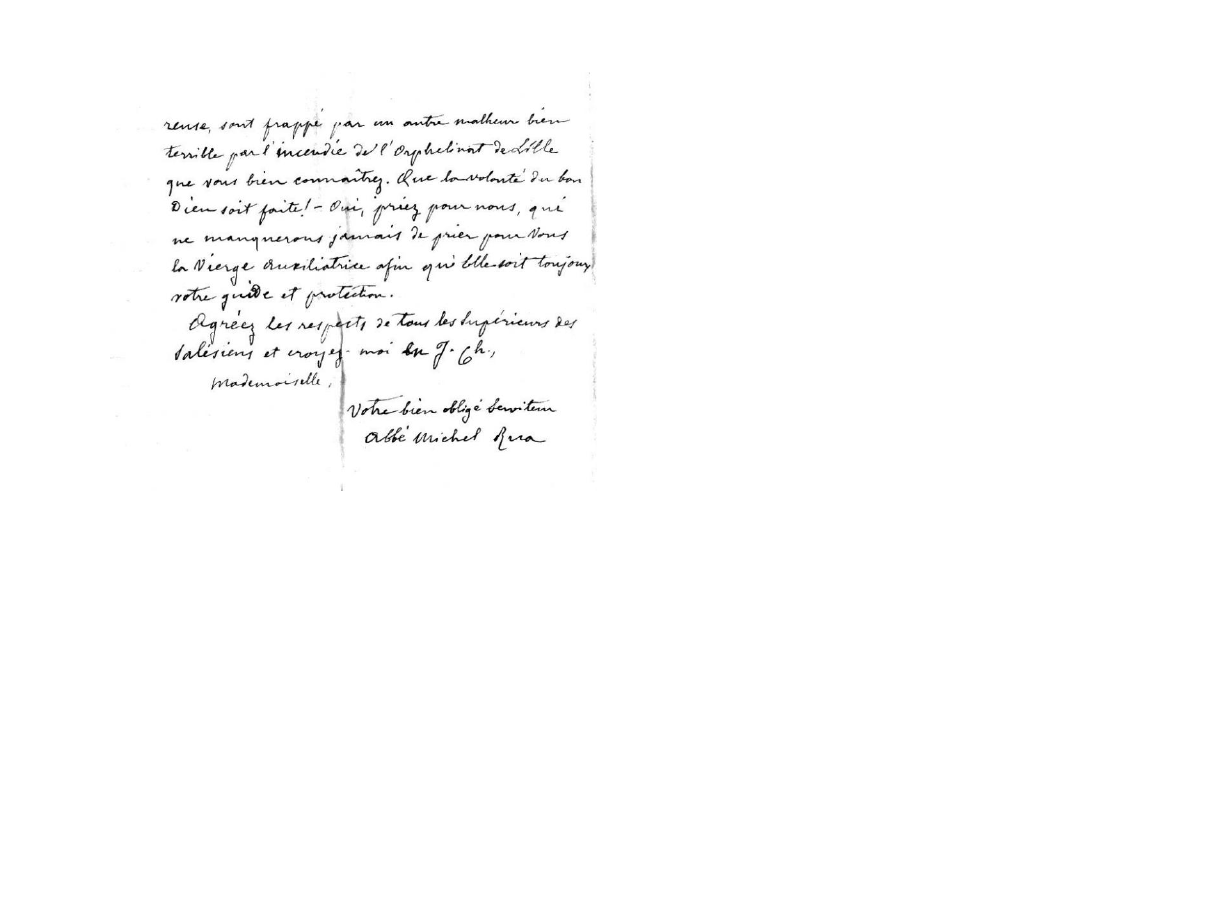 reuse, sont frappé par un autre malheur bien
terrible par l'incendie de l'Orphelinat de Lille
que vous bien connaîtrez. Que la volonté du bon
Dieu soit faite! - Oui, priez pour nous, qui
ne manquerons jamais de prier pour Vous
la Vierge Auxiliatrice afin qu'Elle soit toujours
votre guide et protection.
Agréez les respects de tous les Supérieurs des
Salésiens et croyez-moi en J. Ch.,
Mademoiselle,
Votre bien obligé Serviteur
Abbé Michel Rua